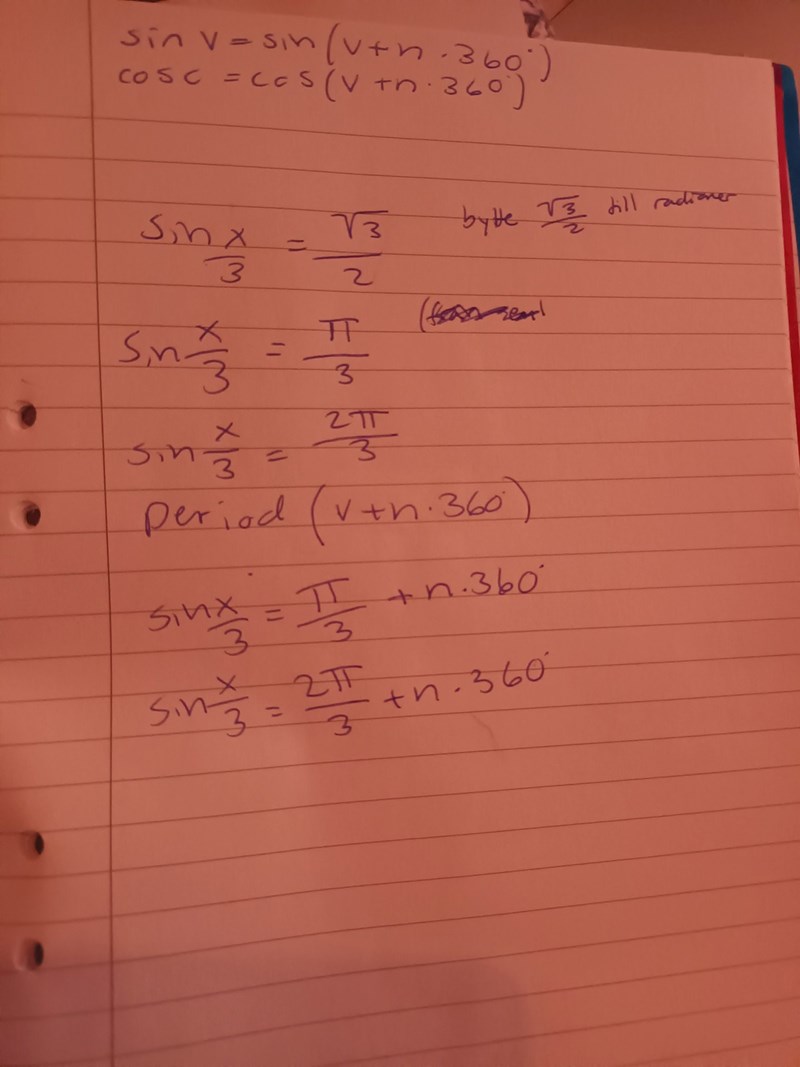 sin v = sin(v+n · 360°)
cos c = cos(v+n · 360°)
sin x/3 = √3/2 byte √3/2 till radianer
sin x/3 = π/3
sin x/3 = 2π/3
period (v+n · 360°)
sin x/3 = π/3 + n · 360°
sin x/3 = 2π/3 + n · 360°